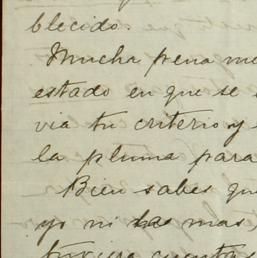 blecido.
Mucha pena me
estado en que se
via tu criterio y
la pluma para
Bien sabes que
yo ni las mas,
tuviera cuentas